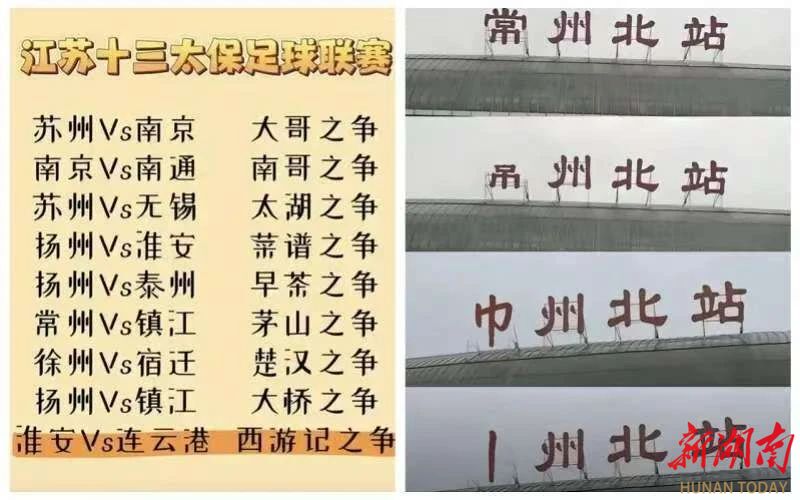 江苏十三太保足球联赛
苏州Vs南京 大哥之争
南京Vs南通 南哥之争
苏州Vs无锡 太湖之争
扬州Vs淮安 菜谱之争
扬州Vs泰州 早茶之争
常州Vs镇江 茅山之争
徐州Vs宿迁 楚汉之争
扬州Vs镇江 大桥之争
淮安Vs连云港 西游记之争
常州北站
吊州北站
巾州北站
丨州北站
新湖南
HUNAN TODAY